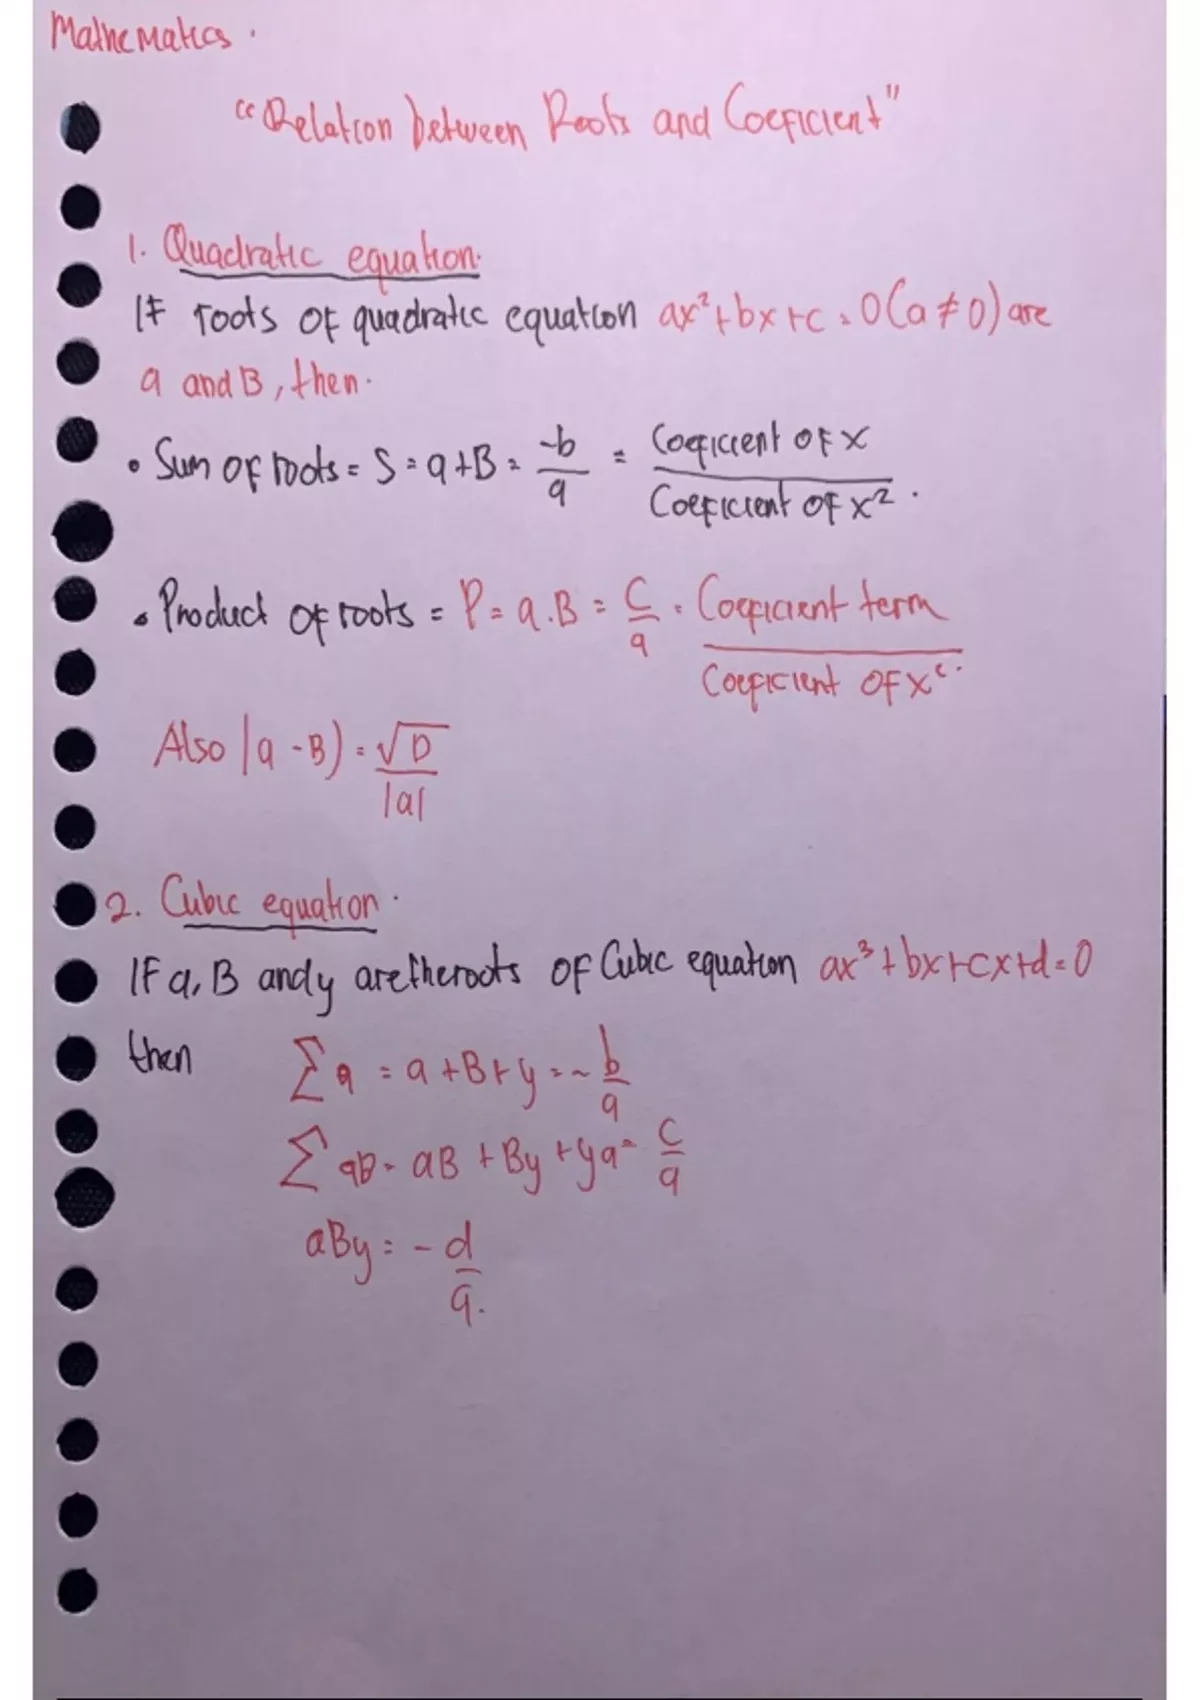 Mathematics.
"Relation between Roots and Coeficient"
1. Quadratic equation.
If roots of quadratic equation ax²+bx+c=0(a≠0) are
a and B, then.
• Sum of roots = S = a+B = -b/a = Coeficient of x / Coeficient of x².
• Product of roots = P = a.B = c/a = Coeficient term / Coeficient of x².
Also |a-B) = √D / |a|
2. Cubic equation.
If a, B and y are the roots of Cubic equation ax³+bx+cx+d=0
then ∑a = a+B+y = -b/a
∑aB = aB+By+ya = c/a
aBy = -d/a.